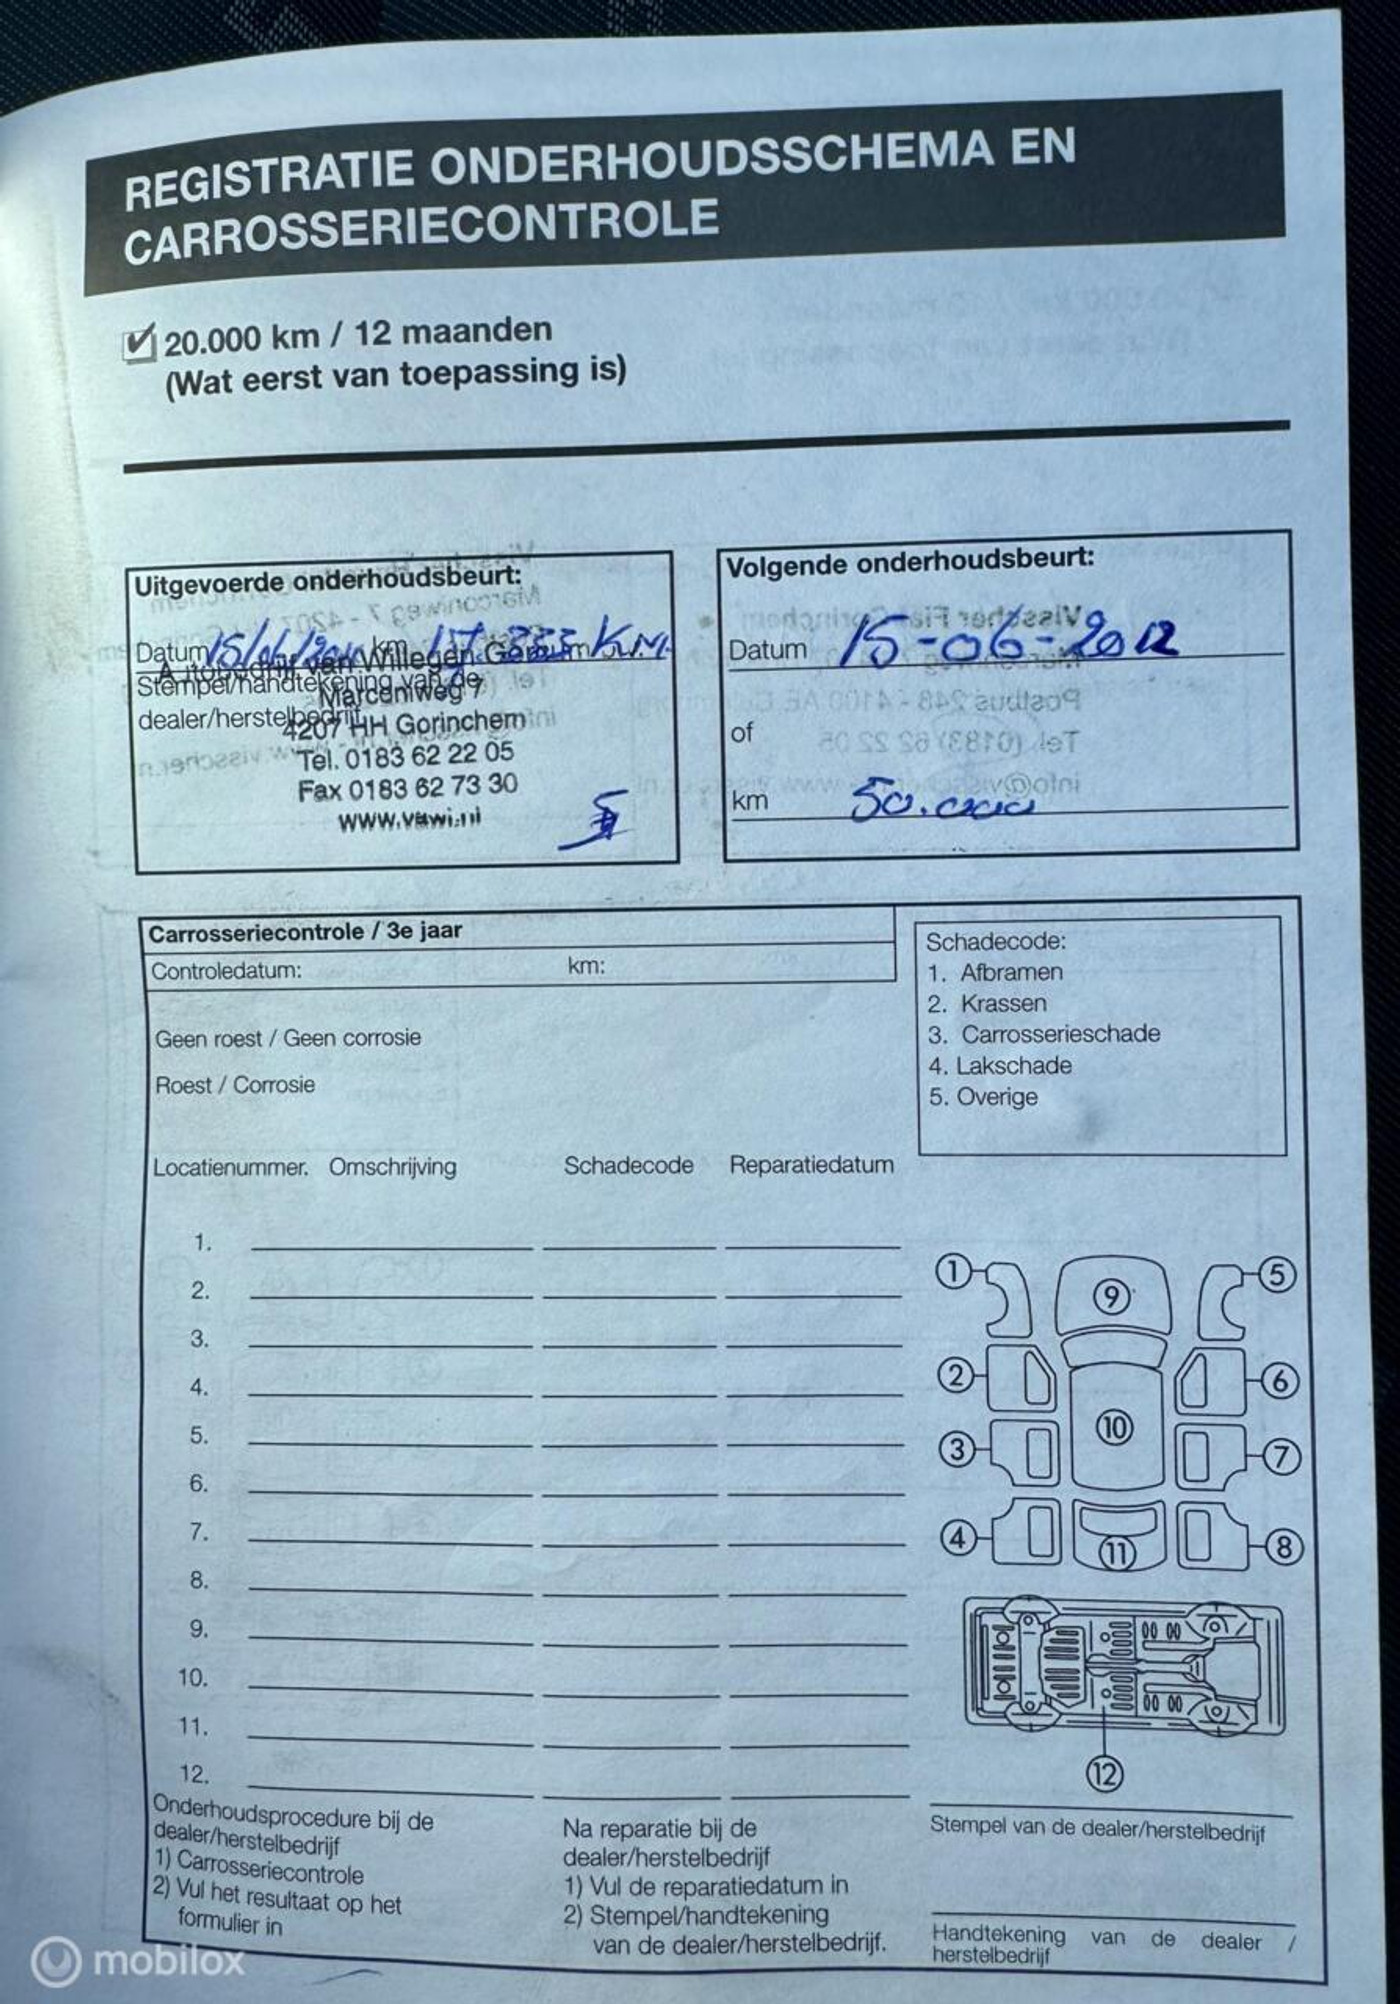 REGISTRATIE ONDERHOUDSSCHEMA EN
CARROSSERIECONTROLE
20.000 km / 12 maanden
(Wat eerst van toepassing is)
Uitgevoerde onderhoudsbeurt:
Datum 15/06/2011 km KM.
Autobedrijf van Willegen Gorinchem B.V.
Stempel/handtekening van de
Marconiweg 7
dealer/herstelbedrijf
4207 HH Gorinchem
Tel. 0183 62 22 05
Fax 0183 62 73 30
www.vawi.nl
Volgende onderhoudsbeurt:
Datum 15-06-2012
of
km 50.000
Carrosseriecontrole / 3e jaar
Controledatum: km:
Geen roest / Geen corrosie
Roest / Corrosie
Schadecode:
1. Afbramen
2. Krassen
3. Carrosserieschade
4. Lakschade
5. Overige
Locatienummer. Omschrijving Schadecode Reparatiedatum
1.
2.
3.
4.
5.
6.
7.
8.
9.
10.
11.
12.
1 9 5
2 6
10
3 7
4 11 8
12
Onderhoudsprocedure bij de
dealer/herstelbedrijf
1) Carrosseriecontrole
2) Vul het resultaat op het
formulier in
Na reparatie bij de
dealer/herstelbedrijf
1) Vul de reparatiedatum in
2) Stempel/handtekening
van de dealer/herstelbedrijf.
Stempel van de dealer/herstelbedrijf
Handtekening van de dealer /
herstelbedrijf
mobilox